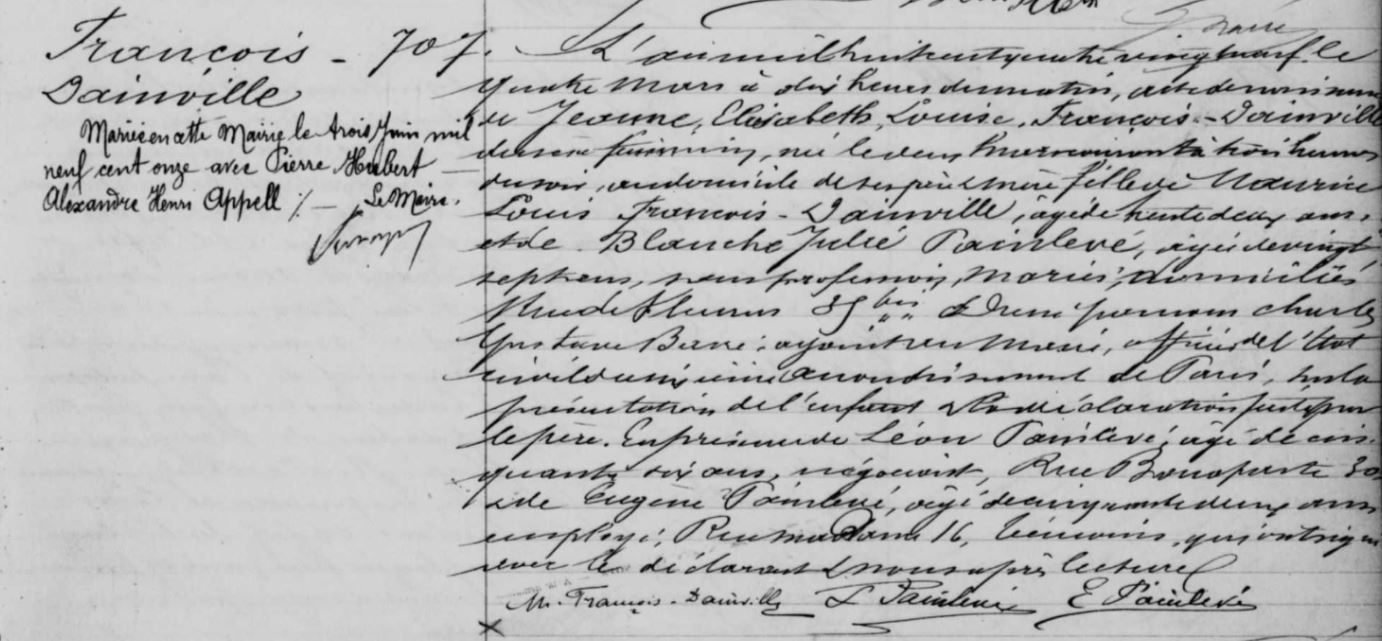 François - 707.
Dainville
Mariée en cette Mairie le trois Juin mil
neuf cent onze avec Pierre Humbert
Alexandre Henri Appell ./. Le Maire.
L'an mil huit cent quatre vingt neuf le
quatre Mars à dix heures du matin, acte de naissance
de Jeanne, Elisabeth, Louise, François-Dainville
du sexe féminin, née le deux Mars courant à trois heures
du soir, au domicile de ses père & mère fille de Maurice
Louis François-Dainville, âgé de trente deux ans,
et de Blanche Julie Painlevé, âgée de vingt
sept ans, sans profession, mariés, domiciliés
Rue de Fleurus 35 bis. Dressé par nous Charles
Gustave adjoint au Maire, officier de l'Etat
civil du sixième arrondissement de Paris, sur la
présentation de l'enfant & la déclaration faite par
le père. En présence de Léon Painlevé, âgé de cin-
quante six ans, négociant, Rue Bonaparte 30
& de Eugène Painlevé, âgé de cinquante deux ans
employé, Rue Madame 16, témoins, qui ont signé
avec le déclarant & nous après lecture
M. François-Dainville L Painlevé E Painlevé